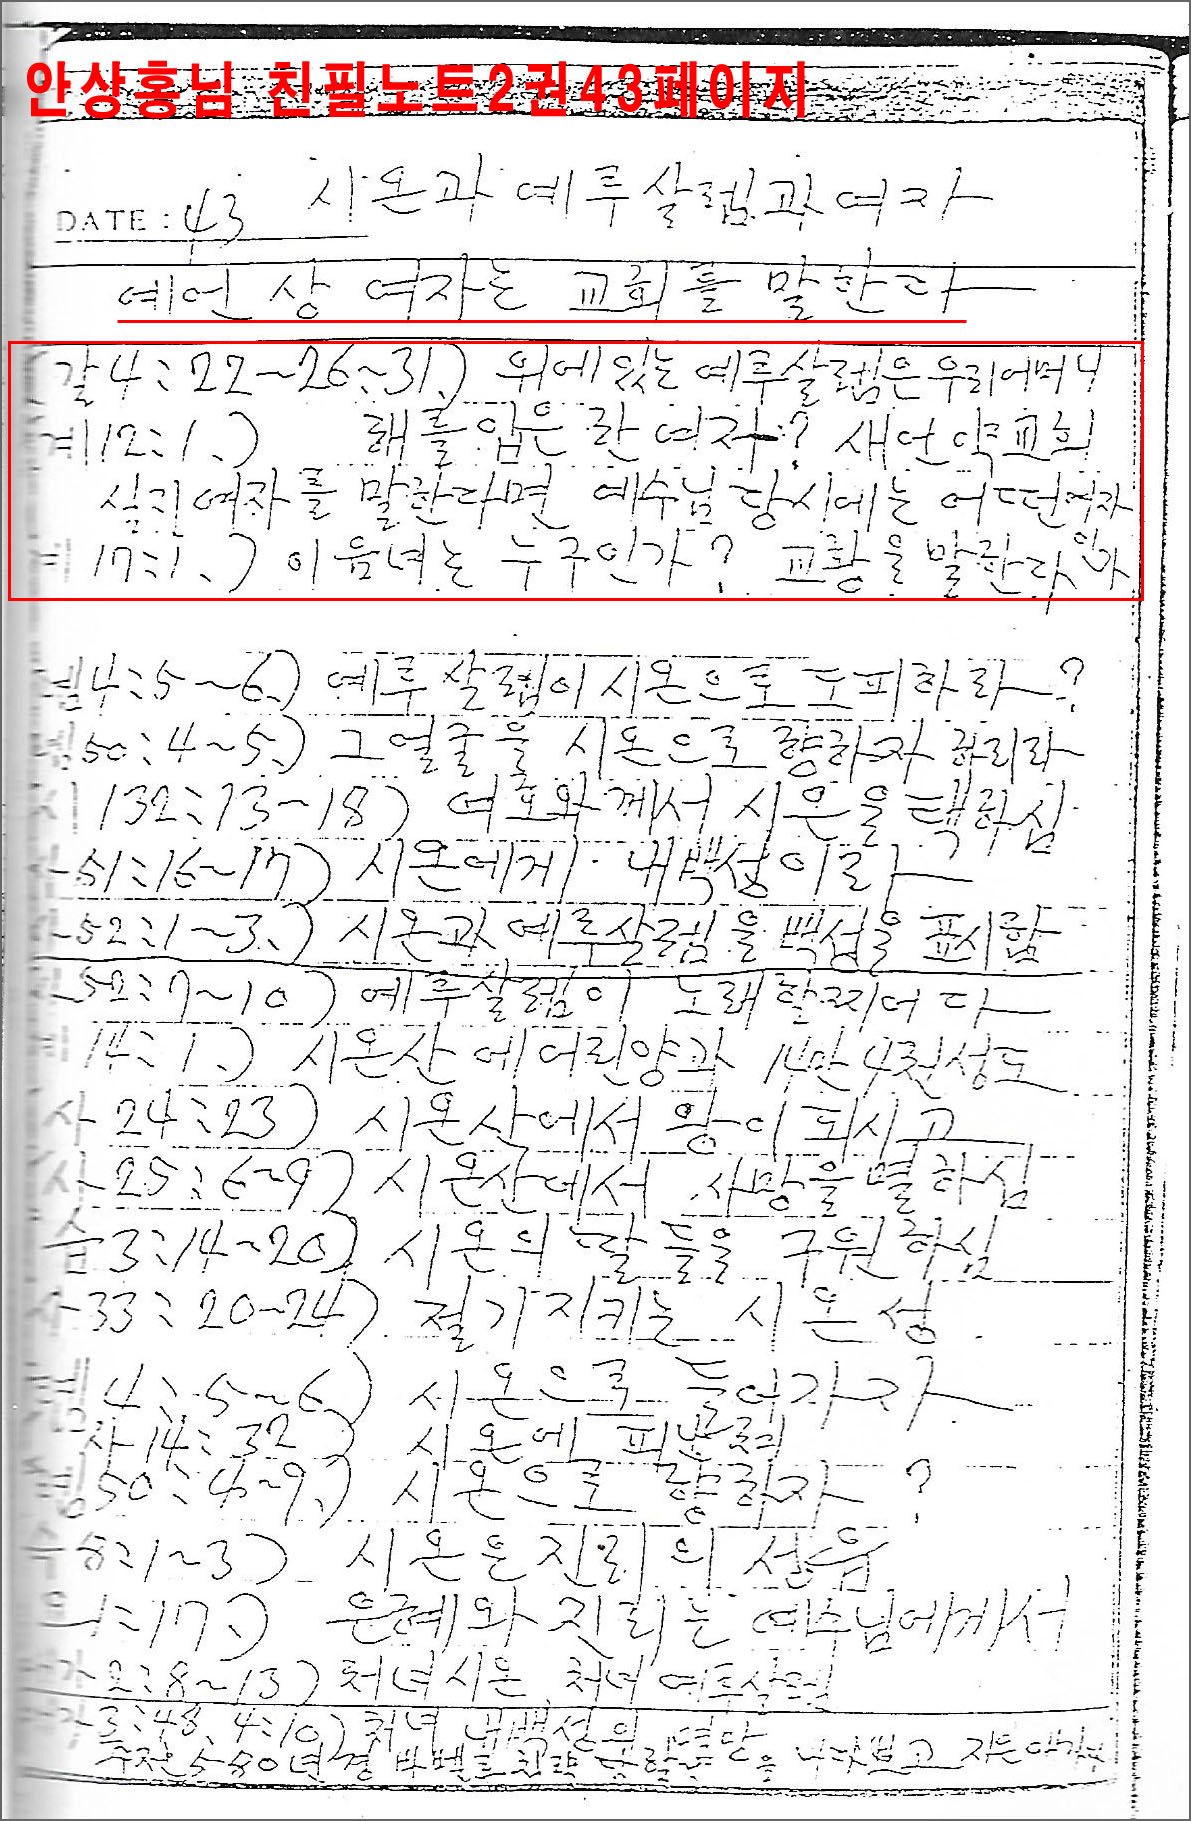 안상홍님 친필노트2권43페이지
시온과 예루살렘과 여자
DATE : 43
예언 상 여자는 교회를 말한다
(갈4:22~26~31.) 위에있는 예루살렘은 우리어머니
계12:1.) 해를 입은 한 여자? 새언약교회
실지 여자를 말한다면 예수님 당시에는 어떤여자인가
17:1.) 이 음녀는 누구인가? 교황을 말한다
렘4:5~6.) 예루살렘이 시온으로 도피하라?
렘50:4~5.) 그 얼굴을 시온으로 향하자 하리라
시132:13~18) 여호와께서 시온을 택하심
사51:16~17) 시온에게 내백성이라
사52:1~3.) 시온과 예루살렘을 백성을 표시함
사52:7~10) 예루살렘이 노래할찌어다
14:1.) 시온산에 어린양과 14만4천성도
사24:23) 시온산에서 왕이 되시고
사25:6~9) 시온산에서 사망을 멸하심
습3:14~20) 시온의 딸들을 구원하심
사33:20~24) 절기 지키는 시온성
렘4:5~6) 시온으로 들어가자
사14:32) 시온에 피난
렘50:4~9.) 시온으로 향하자?
8:1~3) 시온은 진리의
1:17.) 은혜와 진리는 예수님에게서
2:8~13) 처녀 시온, 처녀 예루살렘
3:48, 4:10) 처녀 내백성의 멸망
주전580년경 바벨론 을 보고 지은